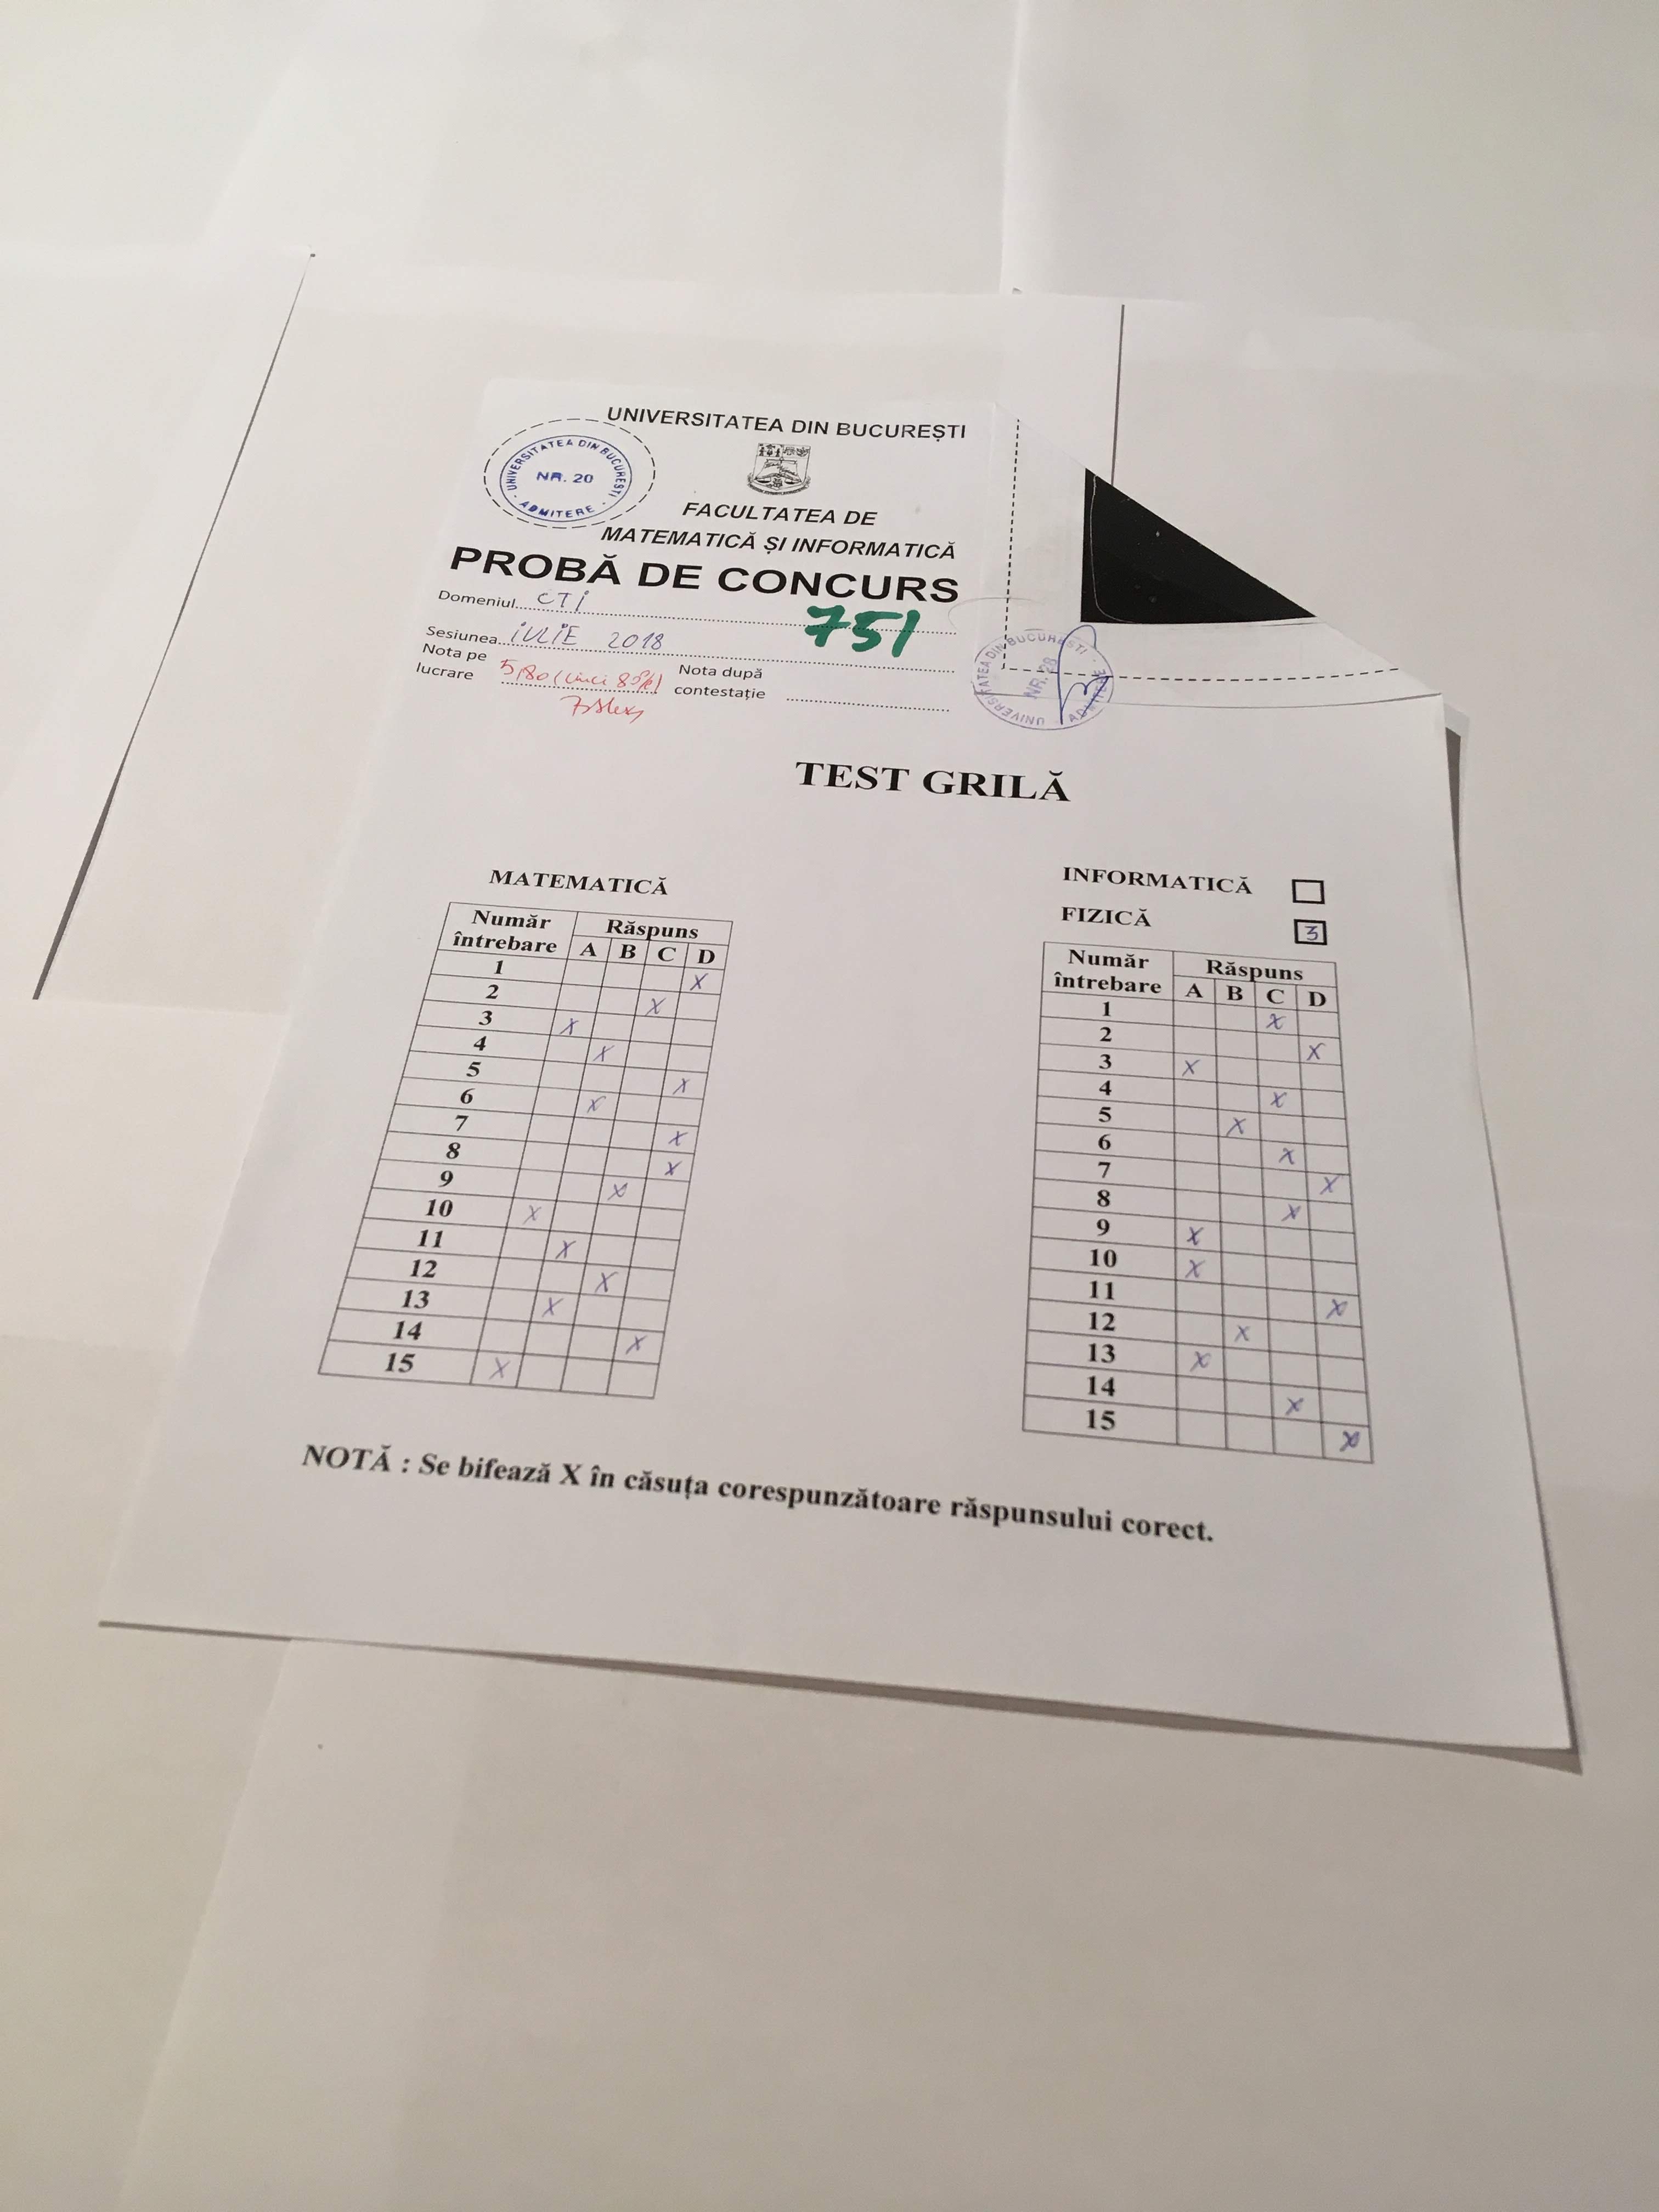 UNIVERSITATEA DIN BUCUREȘTI
UNIVERSITATEA DIN BUCUREȘTI
NR. 20
ADMITERE
FACULTATEA DE
MATEMATICĂ ȘI INFORMATICĂ
PROBĂ DE CONCURS
Domeniul CTI
751
Sesiunea IULIE 2018
Nota pe lucrare 5,80 (cinci
Nota după contestație
UNIVERSITATEA DIN BUCUREȘTI
NR. 28
ADMITERE
TEST GRILĂ
MATEMATICĂ
Număr întrebare Răspuns
A B C D
1 X
2 X
3 X
4 X
5 X
6 X
7 X
8 X
9 X
10 X
11 X
12 X
13 X
14 X
15 X
INFORMATICĂ
FIZICĂ 3
Număr întrebare Răspuns
A B C D
1 X
2 X
3 X
4 X
5 X
6 X
7 X
8 X
9 X
10 X
11 X
12 X
13 X
14 X
15 X
NOTĂ : Se bifează X în căsuța corespunzătoare răspunsului corect.